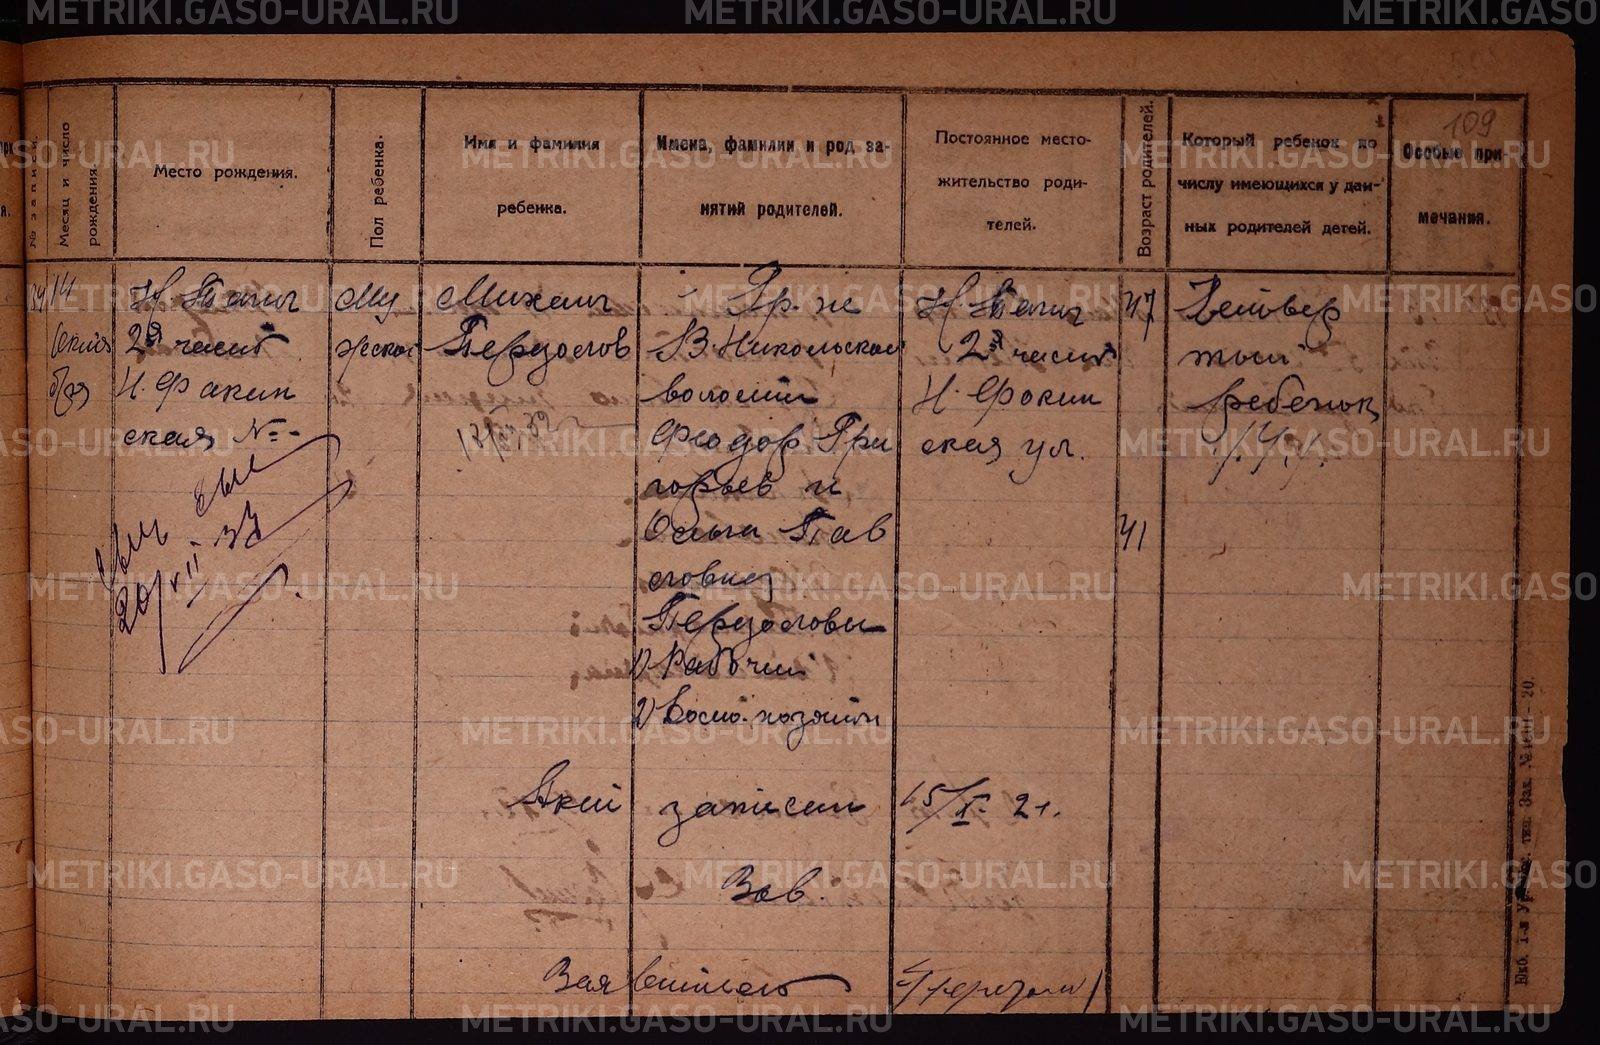 109
№ записи.
Месяц и число рождения.
Место рождения.
Пол ребенка.
Имя и фамилия ребенка.
Имена, фамилии и род занятий родителей.
Постоянное местожительство родителей.
Возраст родителей.
Который ребенок по числу имеющихся у данных родителей детей.
Особые примечания.
14
Н. Тагил
2я часть
Н. Факин
ская №-
Му
жской
Михаил
Перзослов
Гр. ж
В. Никольской
волости
Феодор Гри
горьев и
Ольга Пав
ловна
Перзословы
1) Рабочий
2) Дом. хозяйка
Н. Тагил
2я часть
Н. Фокин
ская ул.
47
41
Четвер
тый
ребенок
20/VII-33
записан 15/X 21.
Зав.
Заявитель
METRIKI.GASO-URAL.RU